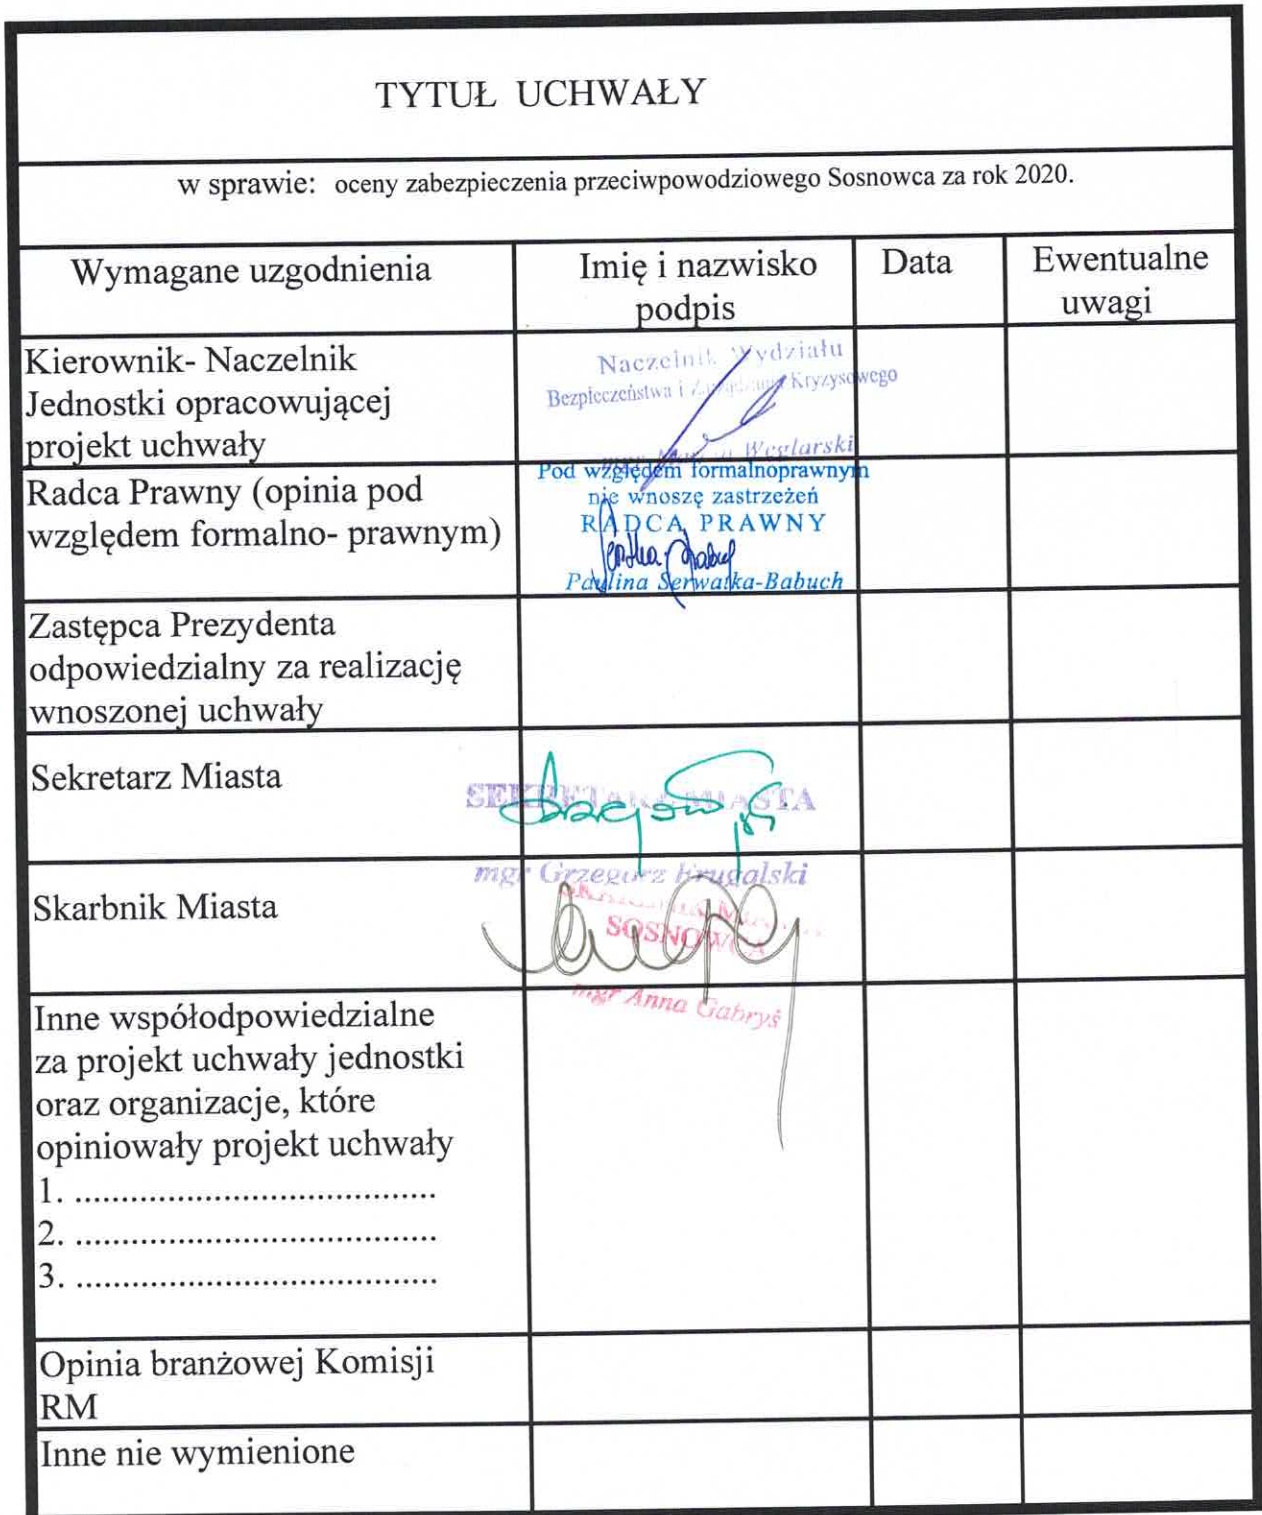 TYTUŁ UCHWAŁY
w sprawie: oceny zabezpieczenia przeciwpowodziowego Sosnowca za rok 2020.
Wymagane uzgodnienia
Imię i nazwisko
podpis
Data
Ewentualne
uwagi
Kierownik- Naczelnik
Jednostki opracowującej
projekt uchwały
Naczelnik Wydziału
Bezpieczeństwa i Zarządzania Kryzysowego
mgr Węglarski
Radca Prawny (opinia pod
względem formalno- prawnym)
Pod względem formalnoprawnym
nie wnoszę zastrzeżeń
RADCA PRAWNY
Paulina Serwatka-Babuch
Zastępca Prezydenta
odpowiedzialny za realizację
wnoszonej uchwały
Sekretarz Miasta
SEKRETARZ MIASTA
mgr Grzegorz
Skarbnik Miasta
SOSNOWCA
mgr Anna Gabryś
Inne współodpowiedzialne
za projekt uchwały jednostki
oraz organizacje, które
opiniowały projekt uchwały
1. .......................................
2. .......................................
3. .......................................
Opinia branżowej Komisji
RM
Inne nie wymienione